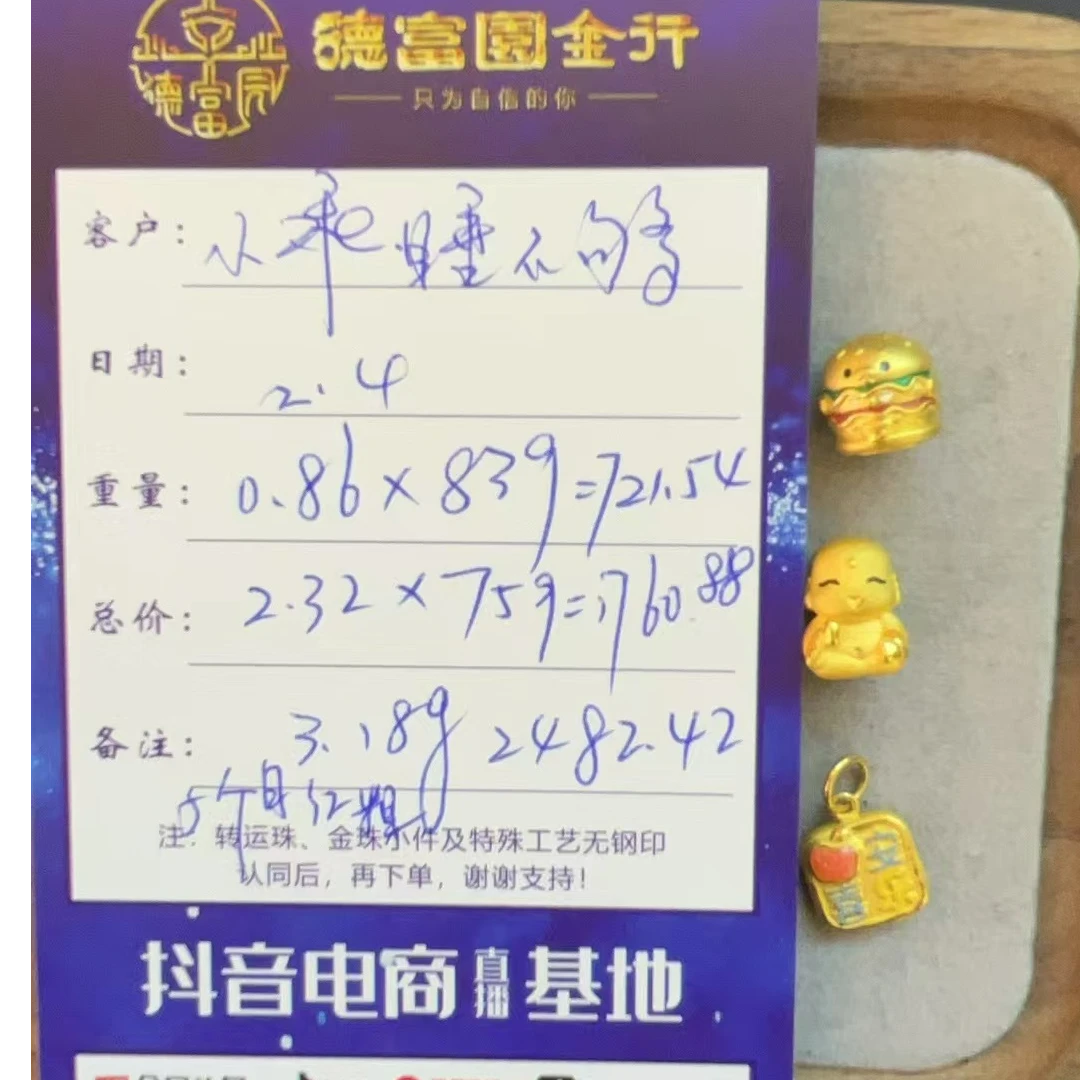 德富園金行
德富园
只为自信的你
客户: 小乖睡不够
日期: 2.4
重量: 0.86×839=721.54
总价: 2.32×759=1760.88
备注: 3.18g 2482.42
5个月红
注: 转运珠、金珠小件及特殊工艺无钢印
认同后，再下单，谢谢支持!
抖音电商直播基地
安
乐